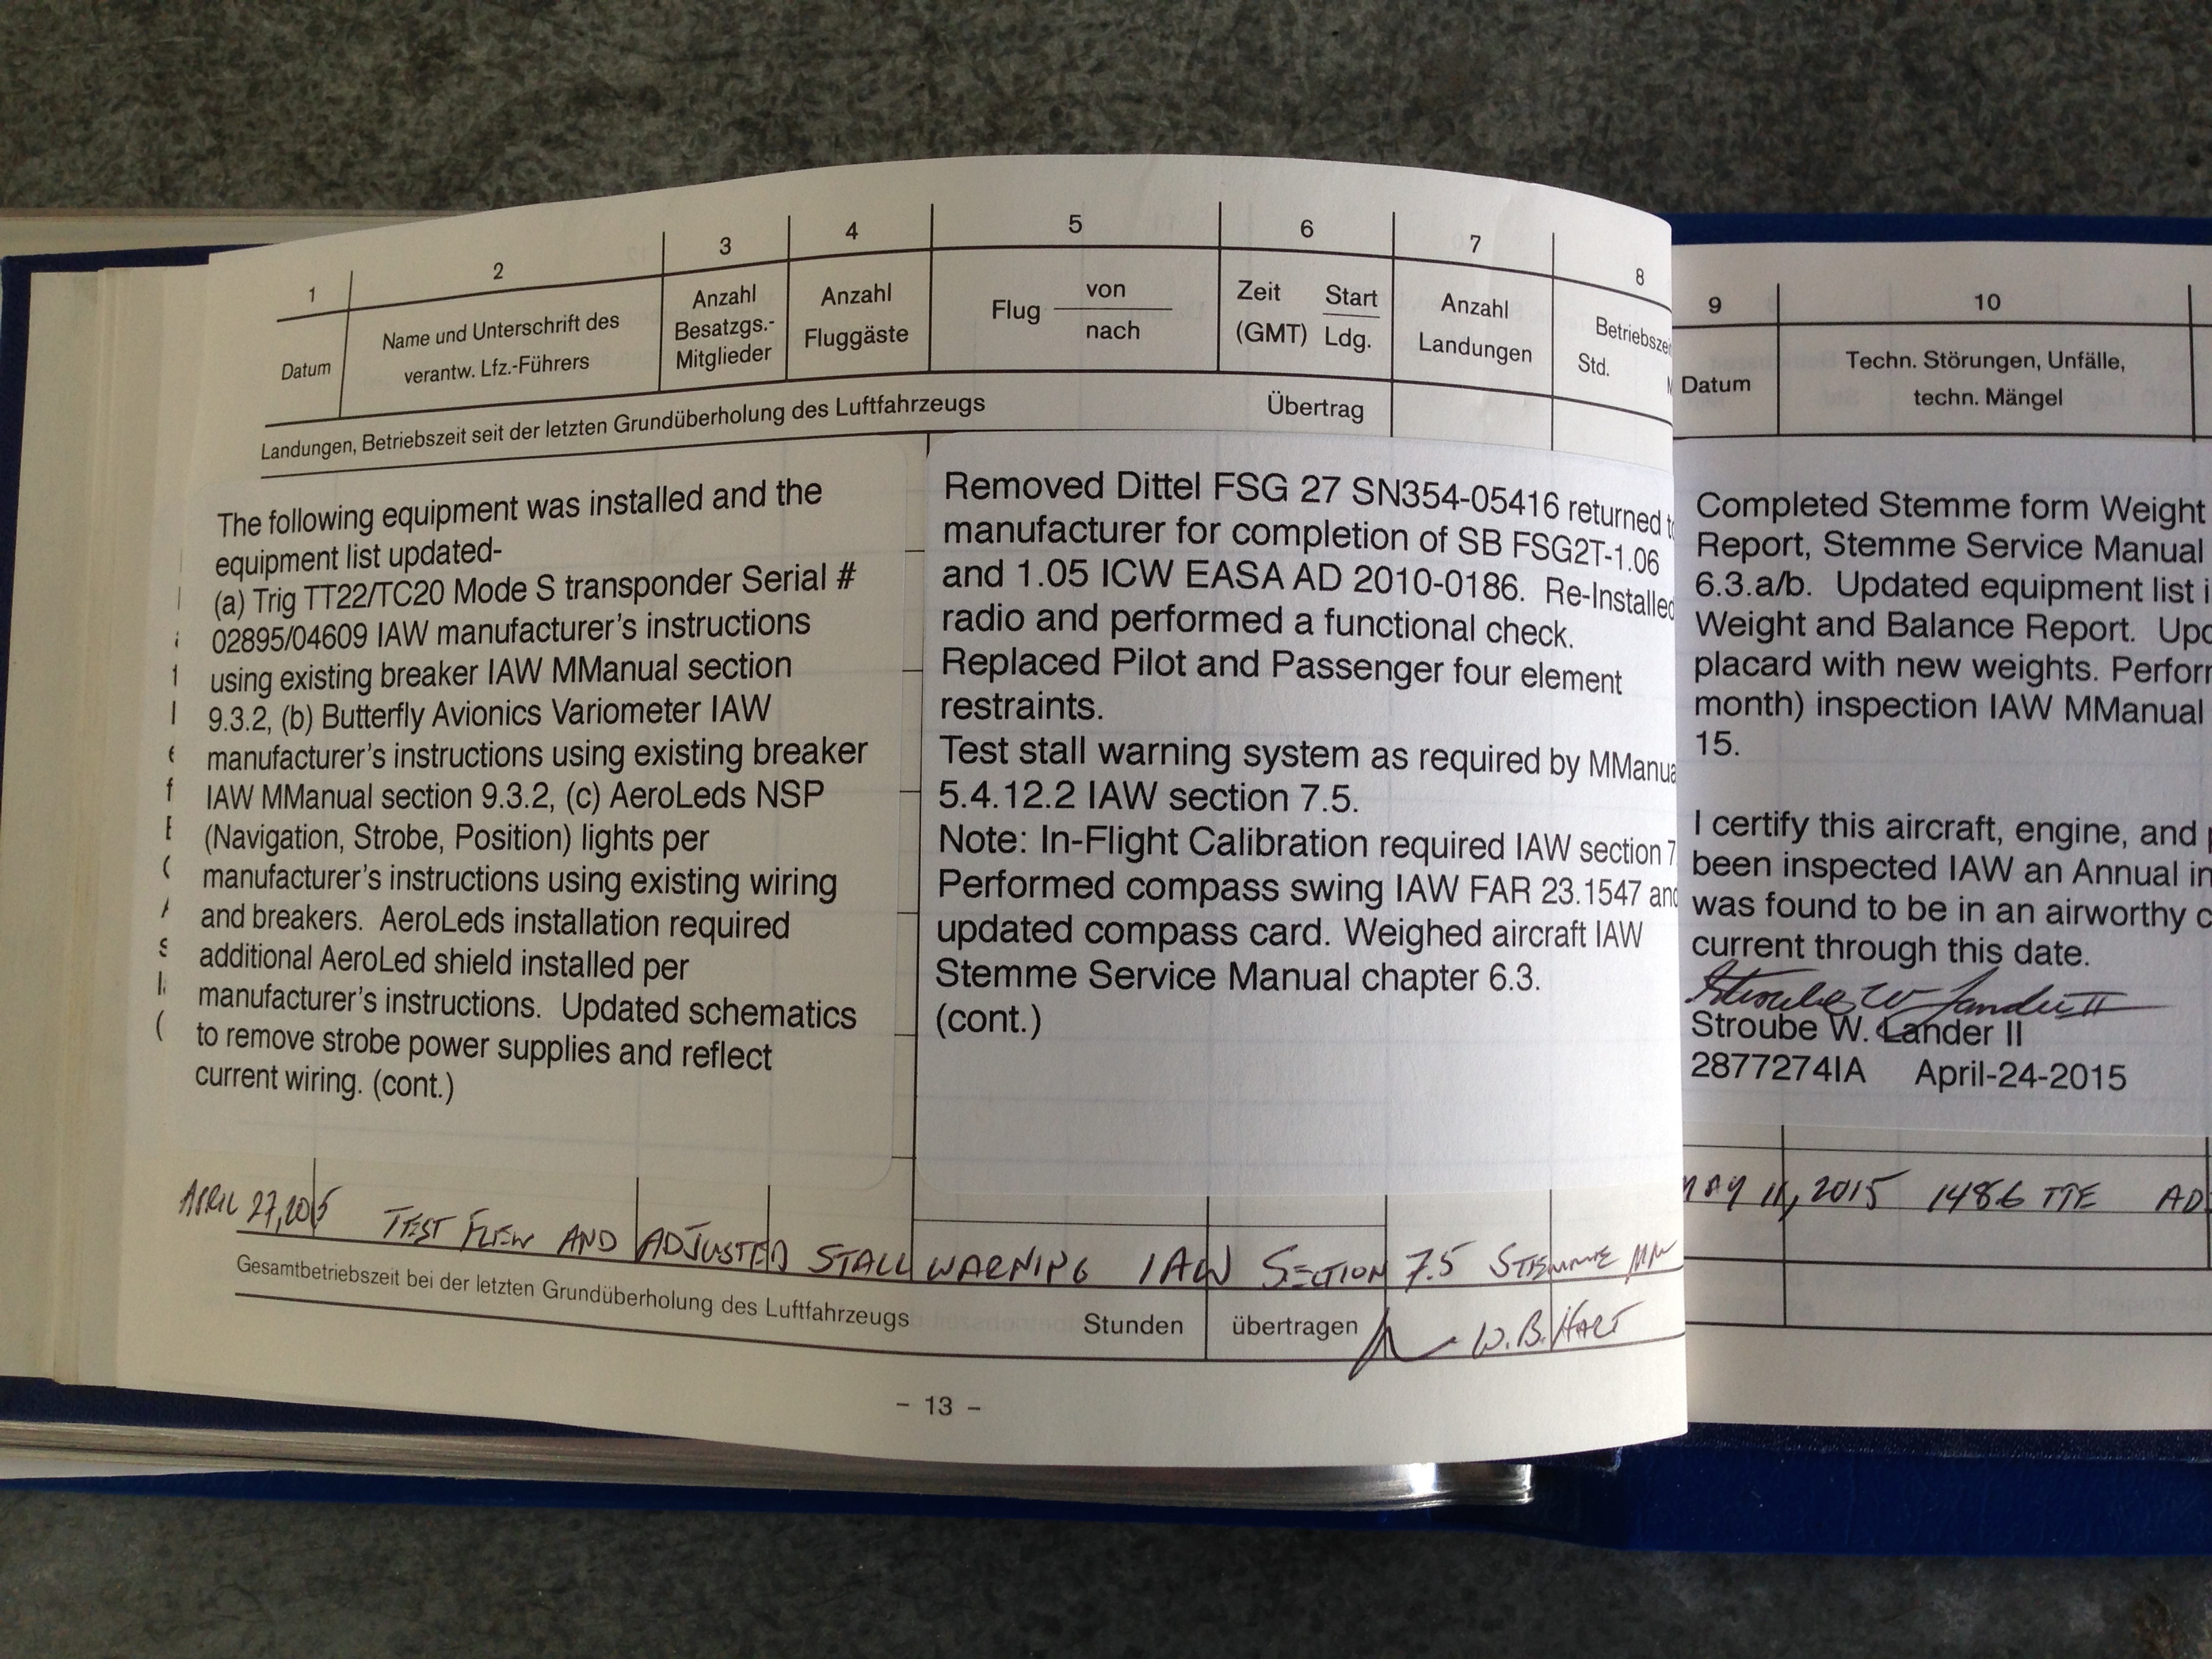 1
2
3
4
5
6
7
8
Datum
Name und Unterschrift des
verantw. Lfz.-Führers
Anzahl
Besatzgs.-
Mitglieder
Anzahl
Fluggäste
Flug von
nach
Zeit Start
(GMT) Ldg.
Anzahl
Landungen
Std.
Landungen, Betriebszeit seit der letzten Grundüberholung des Luftfahrzeugs Übertrag
The following equipment was installed and the
equipment list updated-
(a) Trig TT22/TC20 Mode S transponder Serial #
02895/04609 IAW manufacturer's instructions
using existing breaker IAW MManual section
9.3.2, (b) Butterfly Avionics Variometer IAW
manufacturer's instructions using existing breaker
IAW MManual section 9.3.2, (c) AeroLeds NSP
(Navigation, Strobe, Position) lights per
manufacturer's instructions using existing wiring
and breakers. AeroLeds installation required
additional AeroLed shield installed per
manufacturer's instructions. Updated schematics
to remove strobe power supplies and reflect
current wiring. (cont.)
Removed Dittel FSG 27 SN354-05416 returned
manufacturer for completion of SB FSG2T-1.06
and 1.05 ICW EASA AD 2010-0186. Re-Installed
radio and performed a functional check.
Replaced Pilot and Passenger four element
restraints.
Test stall warning system as required by
5.4.12.2 IAW section 7.5.
Note: In-Flight Calibration required IAW section
Performed compass swing IAW FAR 23.1547 and
updated compass card. Weighed aircraft IAW
Stemme Service Manual chapter 6.3.
(cont.)
APRIL 27, 2015 TEST FLEW AND ADJUSTED STALL WARNING IAW SECTION 7.5 STEMME MM
Gesamtbetriebszeit bei der letzten Grundüberholung des Luftfahrzeugs Stunden übertragen
W.B. HART
- 13 -
9
10
Datum
Techn. Störungen, Unfälle,
techn. Mängel
Completed Stemme form Weight
Report, Stemme Service Manual
6.3.a/b. Updated equipment list
Weight and Balance Report.
placard with new weights.
month) inspection IAW MManual
15.
I certify this aircraft, engine, and
been inspected IAW an Annual
was found to be in an airworthy
current through this date.
Stroube W. Lander II
Stroube W. Lander II
2877274IA April-24-2015
MAY 11, 2015 1486 TTE AD